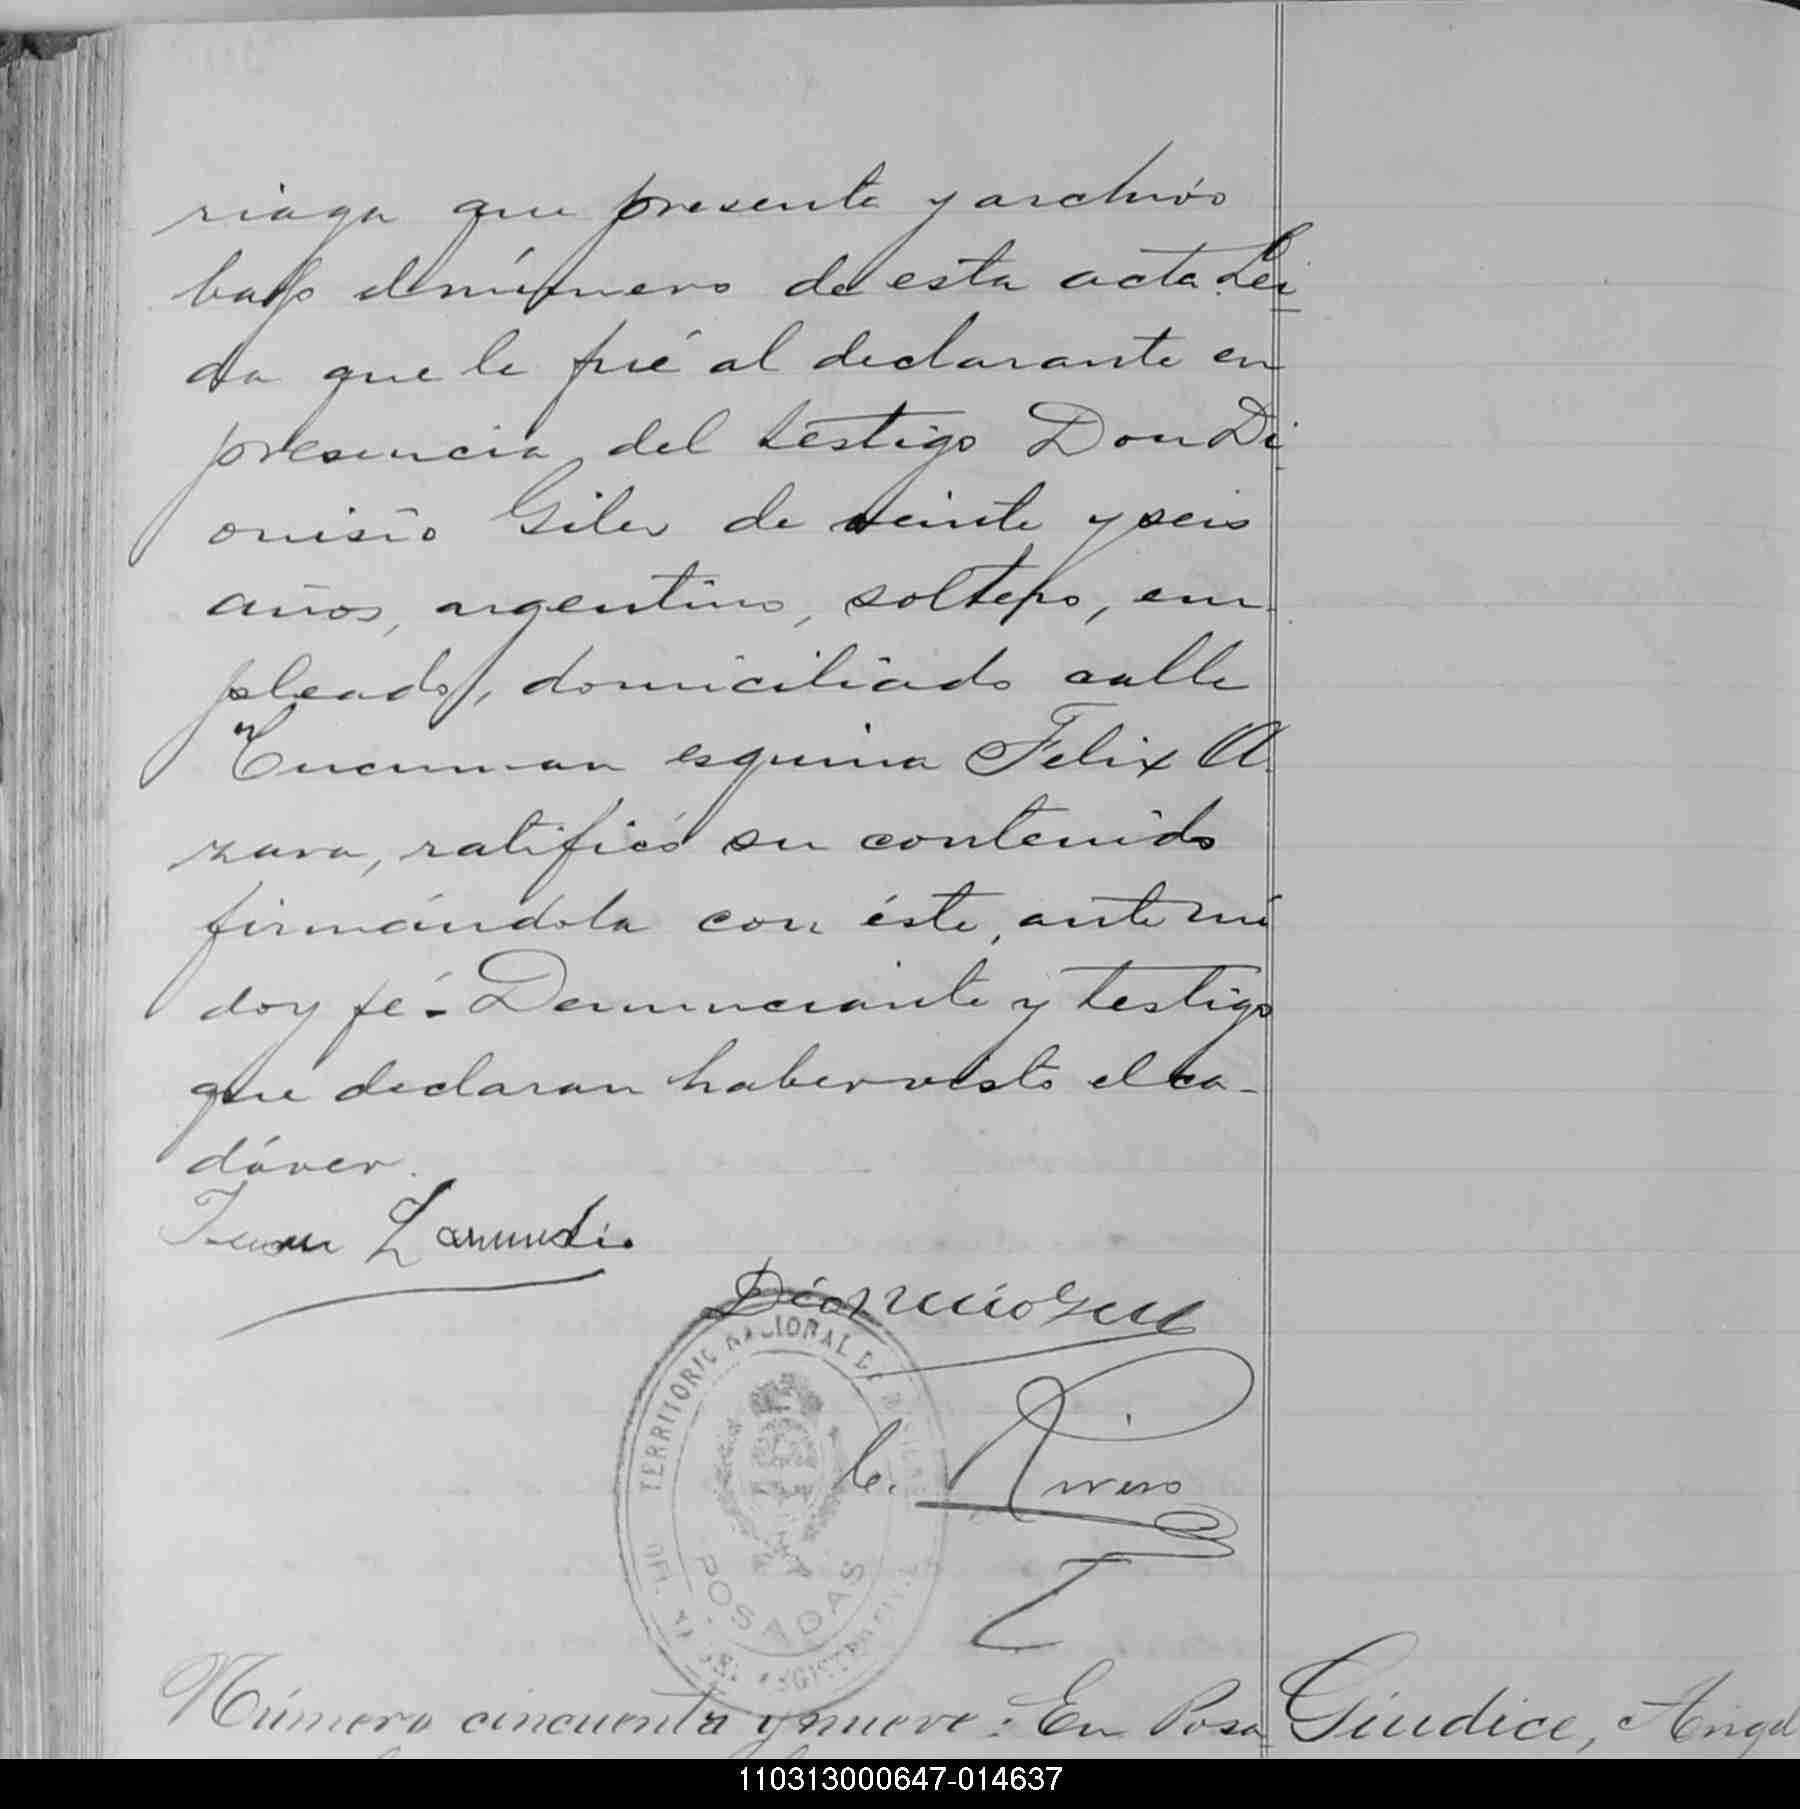 riaga que presenta y archivo
bajo el número de esta acta. Lei
da que le fué al declarante en
presencia del testigo Don Di
onisio Giles de veinte y seis
años, argentino, soltero, em
pleado, domiciliado calle
Tucuman esquina Felix A
zara, ratificó su contenido
firmándola con éste, ante mi
doy fé - Denunciante y testigo
que declaran haber visto el ca-
dáver.
Juan
C. Rivero
TERRITORIO NACIONAL DE MISIONES
POSADAS
Número cincuenta y nueve: En Posa
Giudice, Angel
110313000647-014637